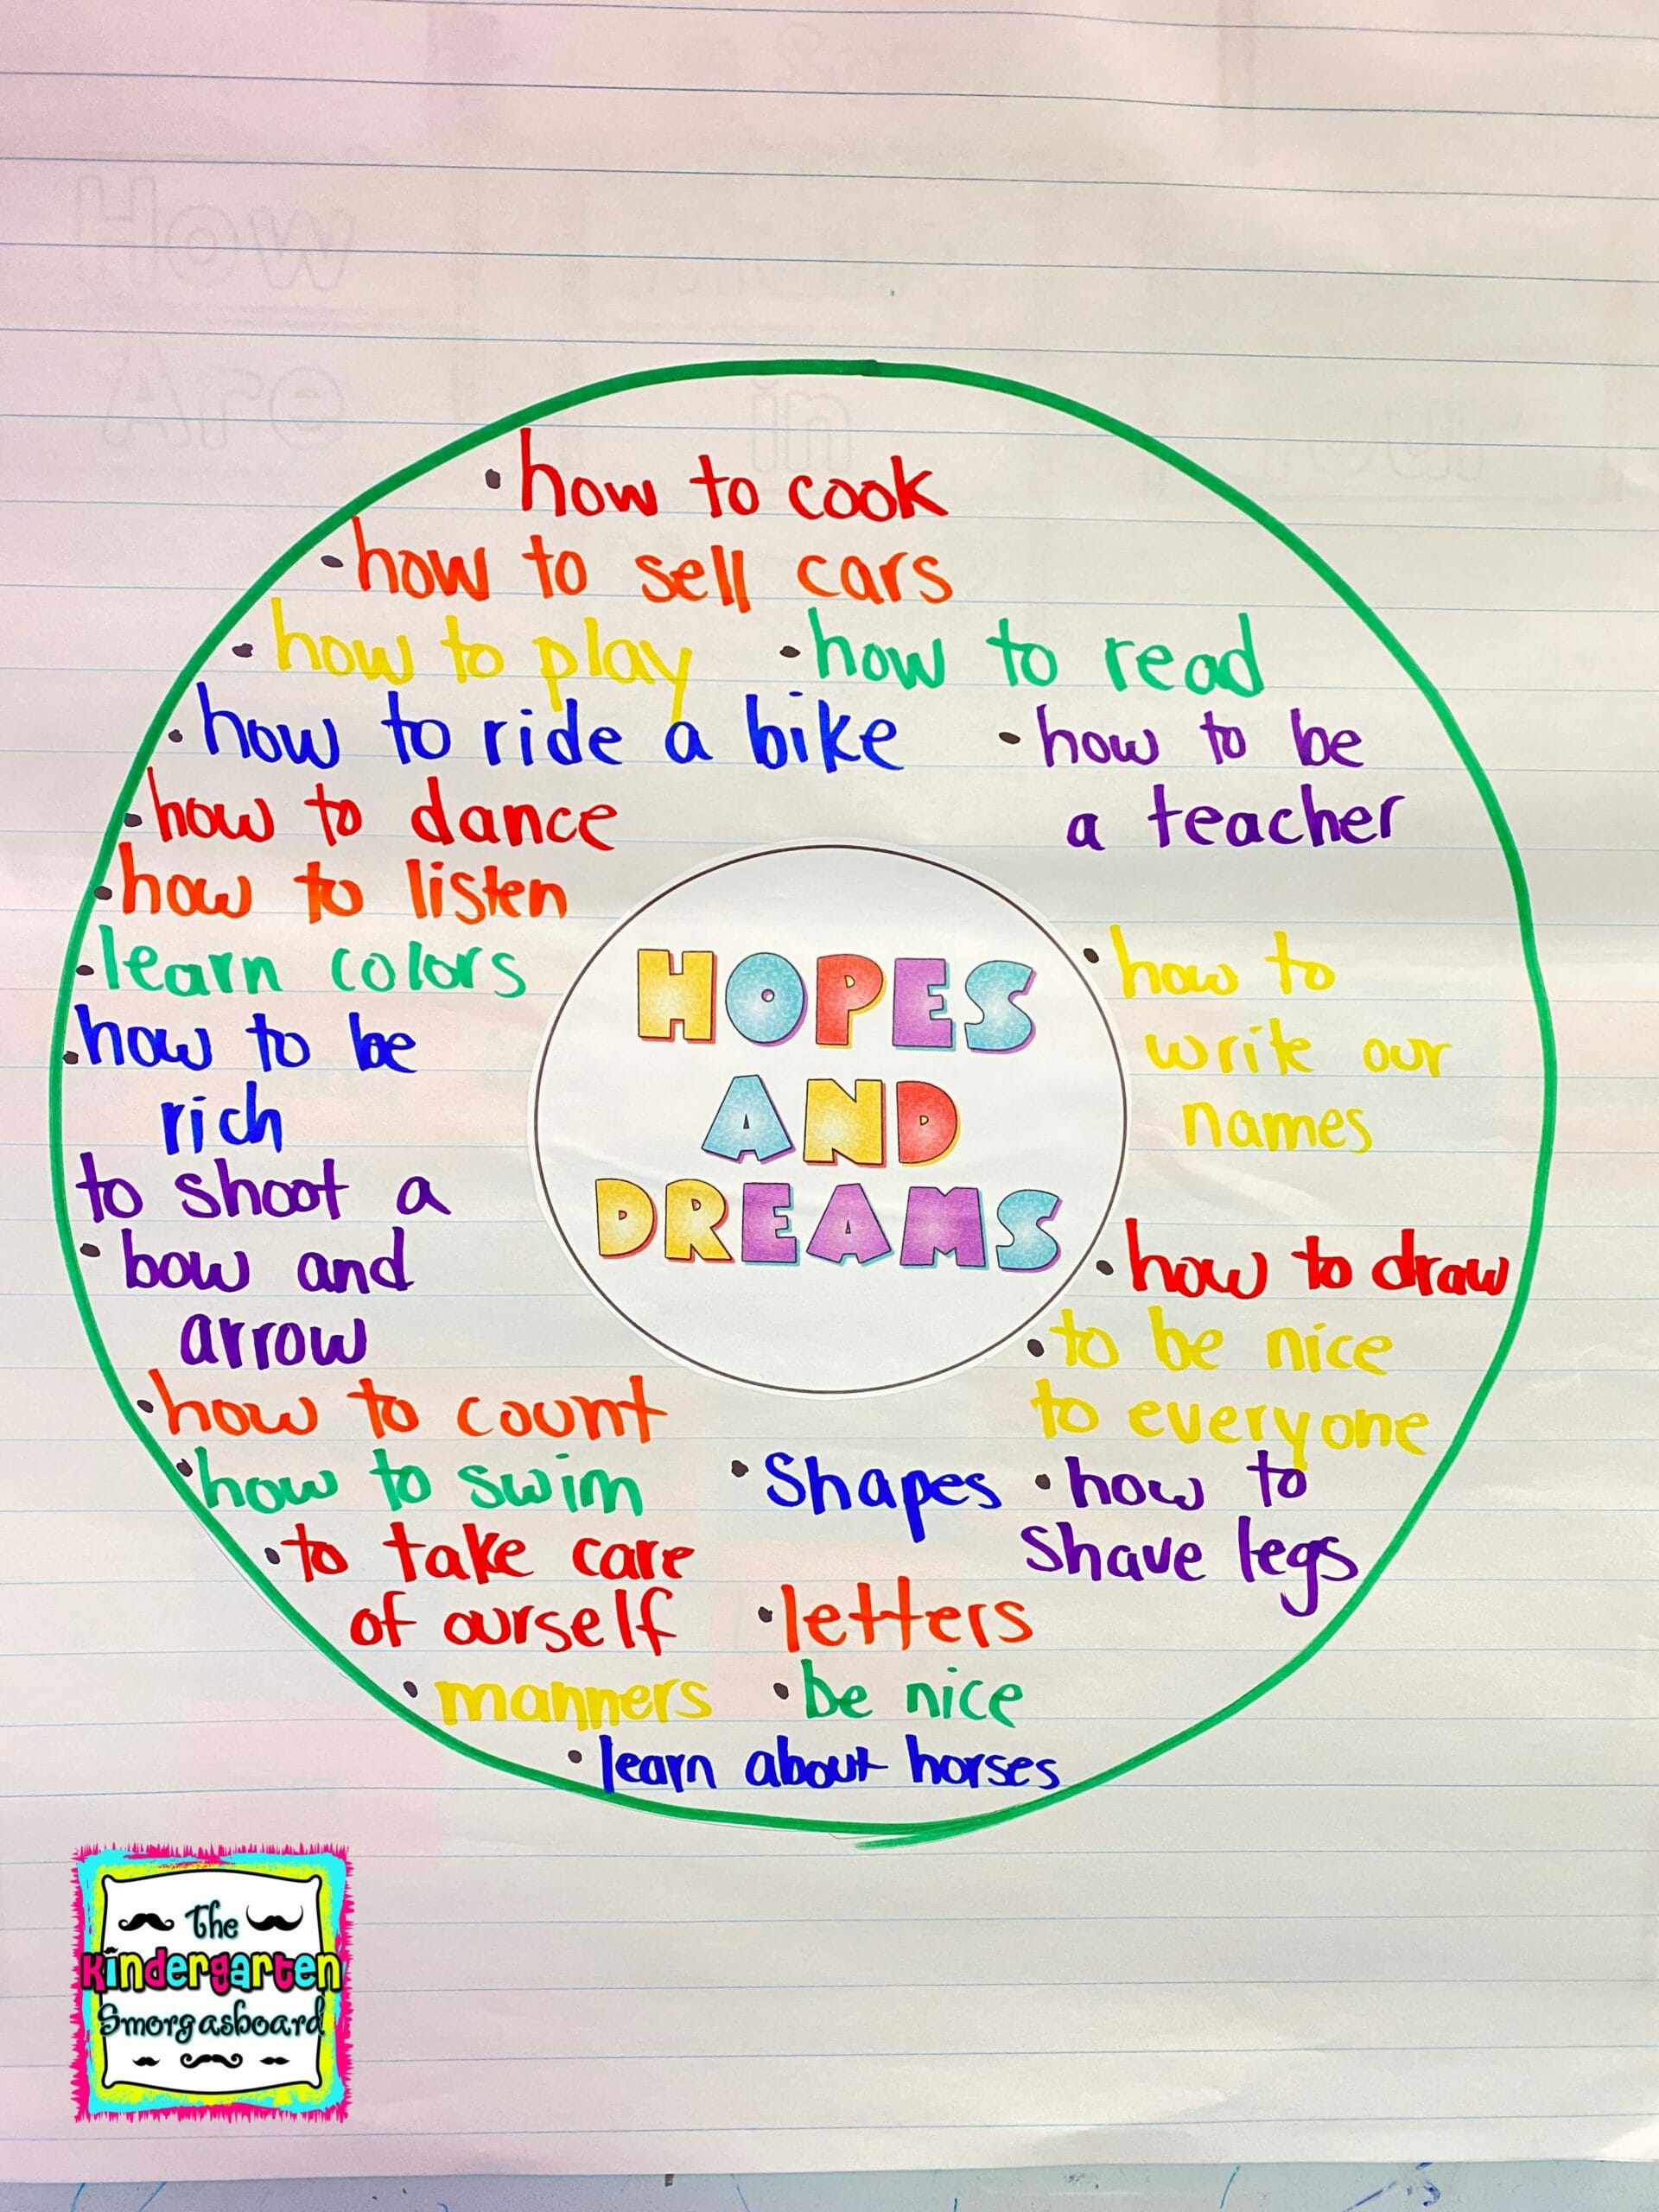 • how to cook
• how to sell cars
• how to play • how to read
• how to ride a bike • how to be
a teacher
• how to dance
• how to listen
• learn colors
• how to
• how to be
write our
rich
names
to shoot a
• bow and
arrow
HOPES
AND
DREAMS
• how to draw
• to be nice
to everyone
• how to count
• how to swim • Shapes • how to
shave legs
• to take care
of ourself • letters
• manners • be nice
• learn about horses
The
Kindergarten
Smorgasboard
How
Are
in
your